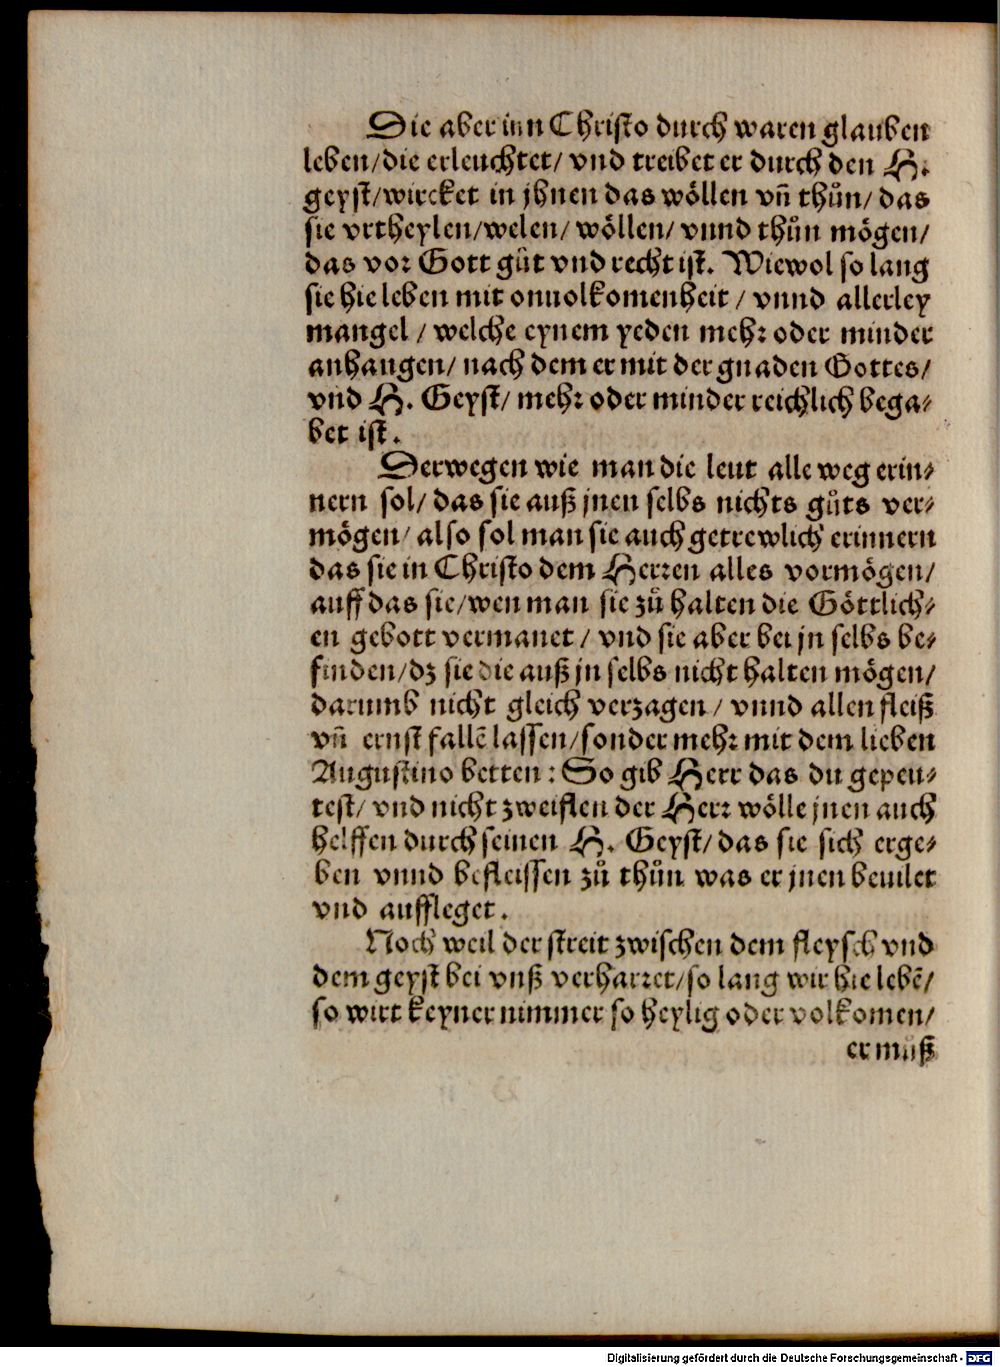 Die aber inn Christo durch waren glauben
leben/die erleuchtet/ vnd treibet er durch den H.
geyst/wircket in jhnen das wöllen vñ thůn/ das
sie vrtheylen/welen/ wöllen/ vnnd thůn mögen/
das vor Gott gůt vnd recht ist. Wiewol so lang
sie hie leben mit onuolkomenheit / vnnd allerley
mangel / welche eynem yeden mehr oder minder
anhangen/ nach dem er mit der gnaden Gottes/
vnd H. Geyst/ mehr oder minder reichlich bega⸗
bet ist.
Derwegen wie man die leut alle weg erin⸗
nern sol/ das sie auß jnen selbs nichts gůts ver⸗
mögen/ also sol man sie auch getrewlich erinnern
das sie in Christo dem Herren alles vormögen/
auff das sie/wen man sie zů halten die Göttlich⸗
en gebott vermanet / vnd sie aber bei jn selbs be⸗
finden/dz sie die auß jn selbs nicht halten mögen/
darumb nicht gleich verzagen / vnnd allen fleiß
vñ ernst fallē lassen/sonder mehr mit dem lieben
Augustino betten: So gib Herr das du gepeu⸗
test/ vnd nicht zweiflen der Herr wölle jnen auch
helffen durch seinen H. Geyst/ das sie sich erge⸗
ben vnnd befleissen zů thůn was er jnen beuilet
vnd auffleget.
Noch weil der streit zwischen dem fleysch vnd
dem geyst bei vnß verharret/so lang wir hie lebē/
so wirt keyner nimmer so heylig oder volkomen/
er můß
Digitalisierung gefördert durch die Deutsche Forschungsgemeinschaft - DFG